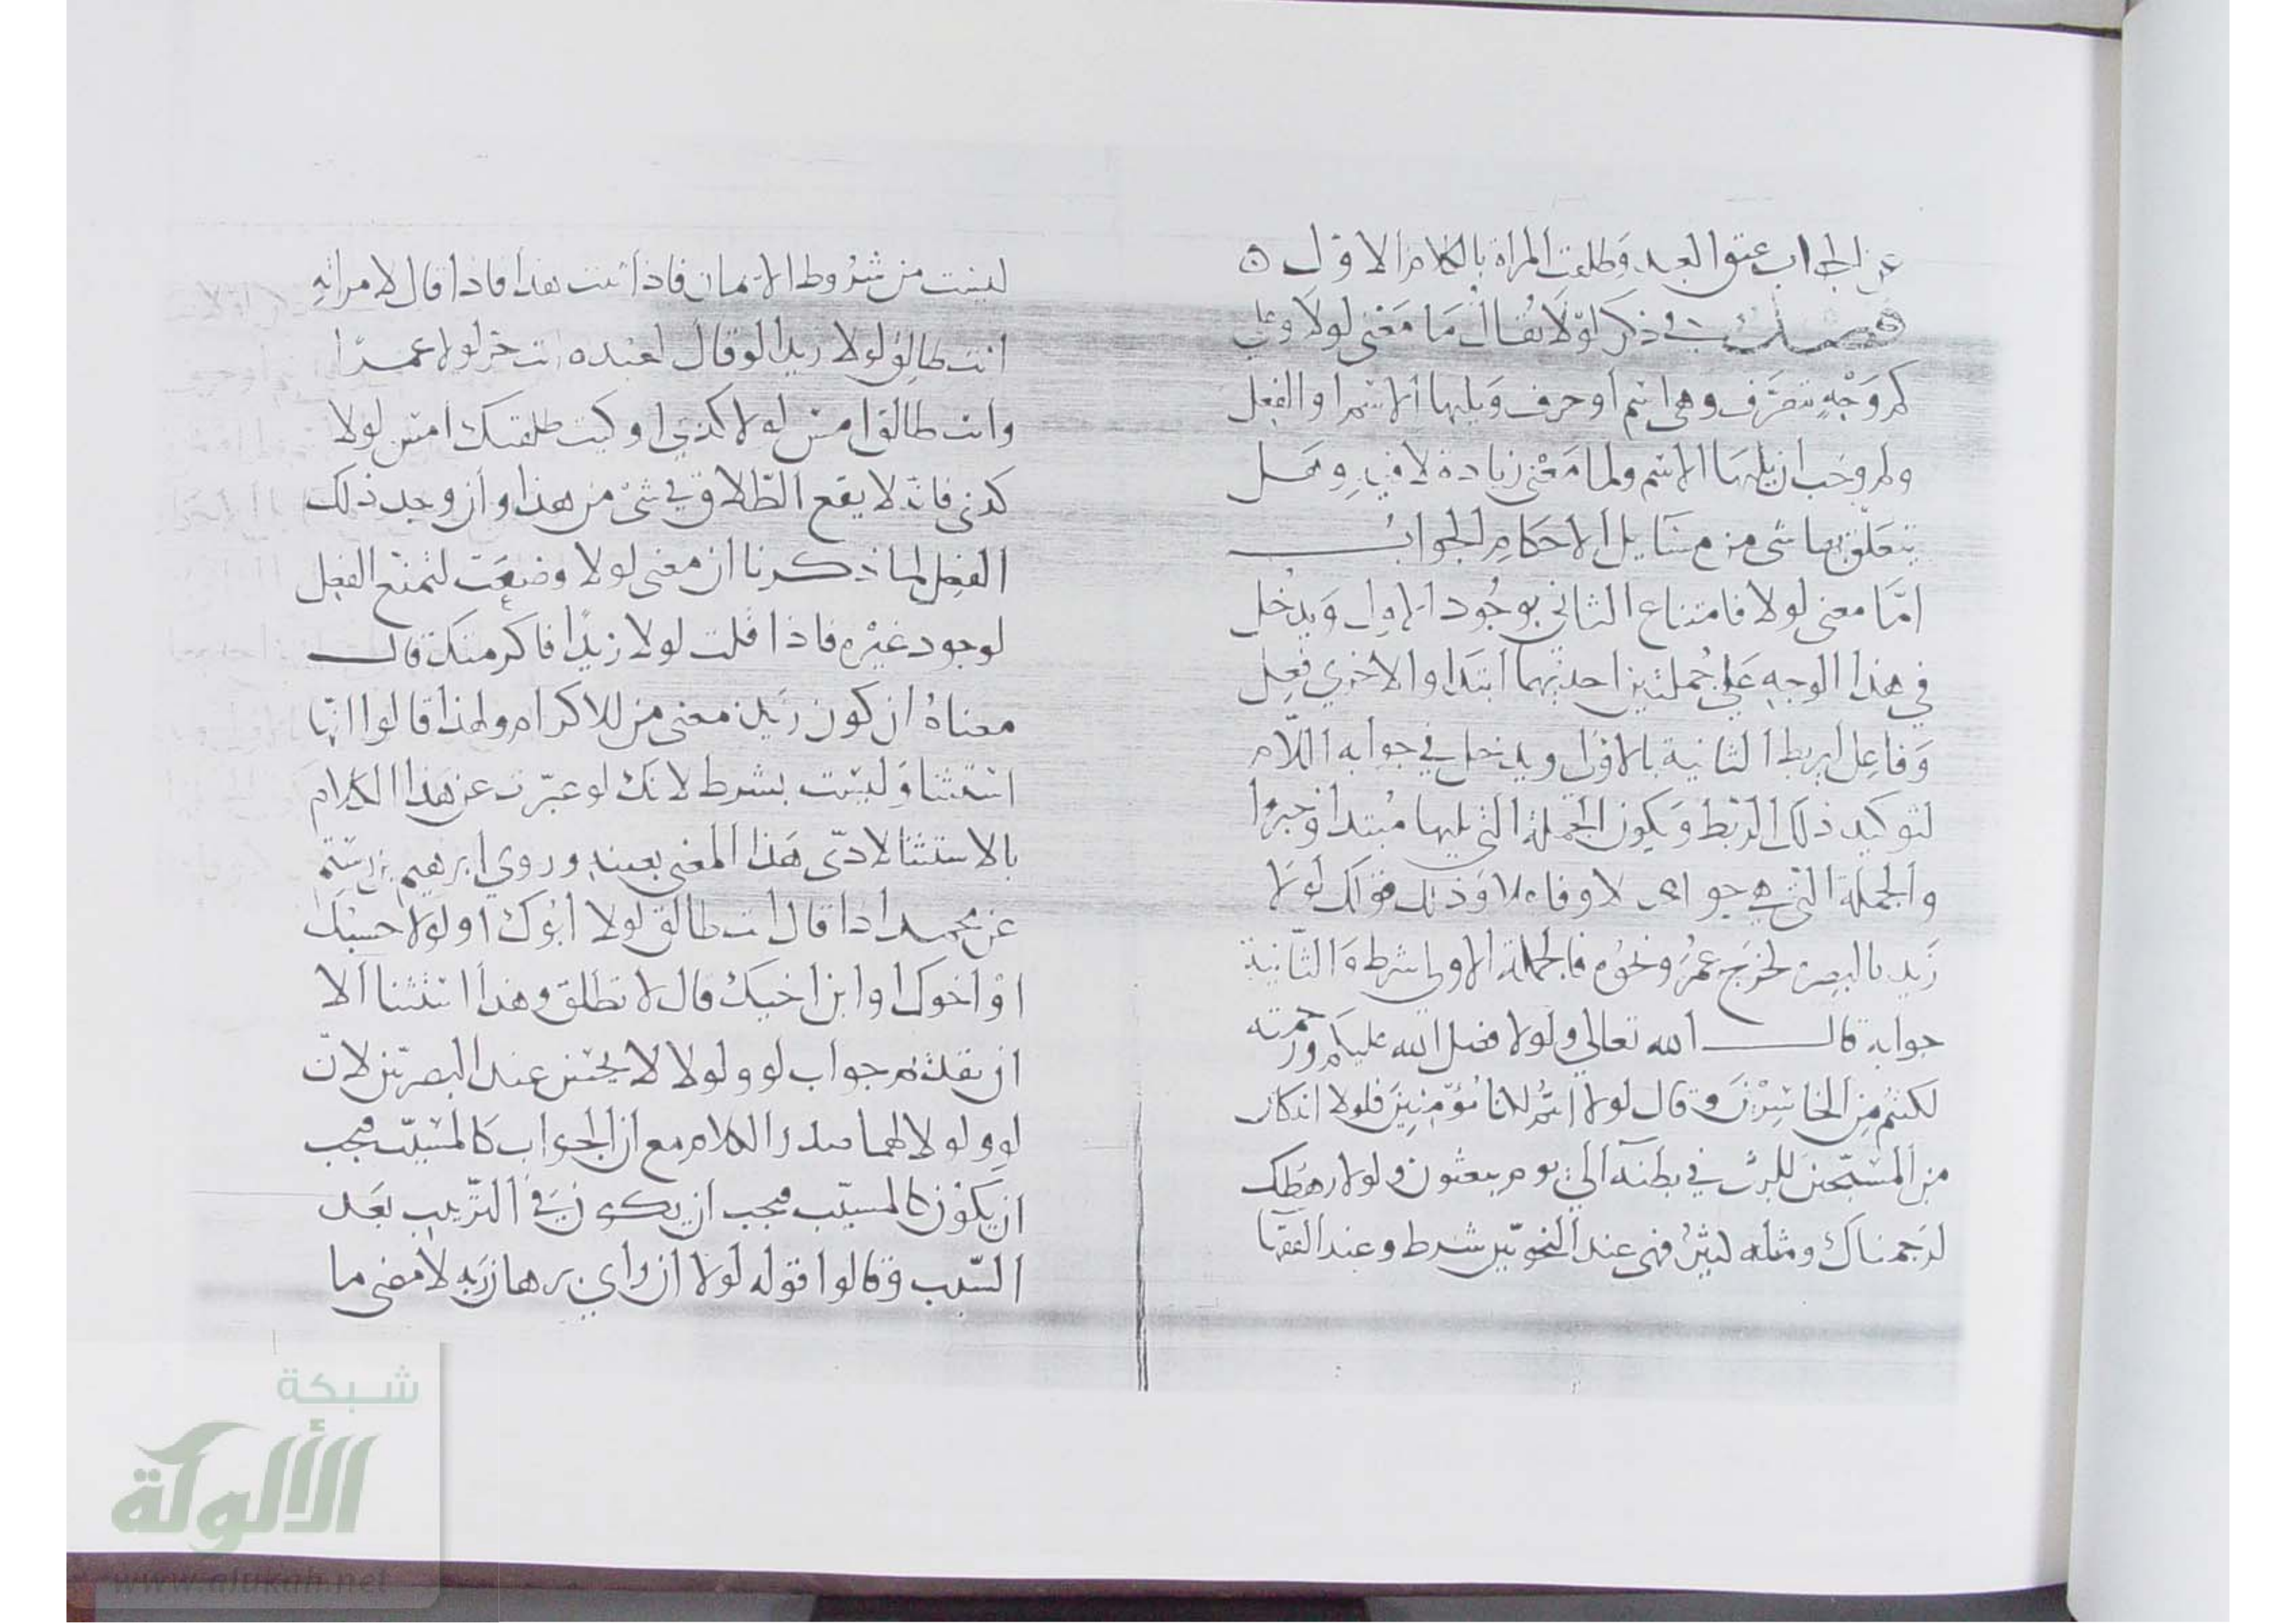 عن الجواب عتق العبد وطلقت المراة بالكلام الاول
فصل في ذكر لولا يقال ما معنى لولا وعلى
كم وجه تتصرف وهي اسم او حرف ويليها الاسم او الفعل
ولم وجب ان يليها الاسم ولما معنى زيادة لا فيه وهل
يتعلق بها شي من مسايل الاحكام الجواب
امّا معنى لولا فامتناع الثاني بوجود الاول ويدخل
في هذا الوجه على جملتين احديهما ابتدا والاخرى فعل
وفاعل لربط الثانية بالاول ويدخل في جوابه اللام
لتوكيد ذلك الربط ويكون الجملة التي يليها مبتدا وخبرا
والجملة التي هي جوابها وذلك قولك لولا
زيد بالبصرة لخرج عمرو ونحوه فالجملة الاولى شرط والثانية
جوابه قال الله تعالى ولولا فضل الله عليكم ورحمته
لكنتم من الخاسرين وقال لولا انتم لكنا مؤمنين فلولا انه كان
من المسبحين للبث في بطنه الى يوم يبعثون ولولا رهطك
لرجمناك ومثله كثير فهي عند النحويين شرط وعند الفقها
ليست من شروط الايمان فاذا ثبت هذا فاذا قال لامراته
انت طالق لولا زيد او قال لعبده انت حر لولا عمرا
وانت طالق امس لولا كذي او كيت طلقتك امس لولا
كذى فانه لا يقع الطلاق في شئ من هذا وان وجد ذلك
الفعل لما ذكرنا ان معنى لولا وضعت لتمنع الفعل
لوجود غيره فاذا قلت لولا زيدا فاكرمتك قال
معناه ان كون زيد معنى من للاكرام ولهذا قالوا انها
استثنا وليست بشرط لانك لو عبّرت عن هذا الكلام
بالاستثنا لادّى هذا المعنى بعينه وروي ابرهيم بن رستم
عن محمد اذا قال انت طالق لولا ابوك او لولا حسبك
او اخوك او ابن اخيك قال لا تطلق وهذا استثنا الا
ان تقدّم جواب لو ولولا لا يحسن عند البصريّين لانّ
لو ولولا لهما صدر الكلام مع ان الجواب كالمسبّب فيجب
ان يكون كالمسبّب فيجب ان يكون في الترتيب بعد
السّبب وقالوا قوله لولا ان راى برهان ربه لا معنى ما
شبكة
الألوكة
www.alukah.net